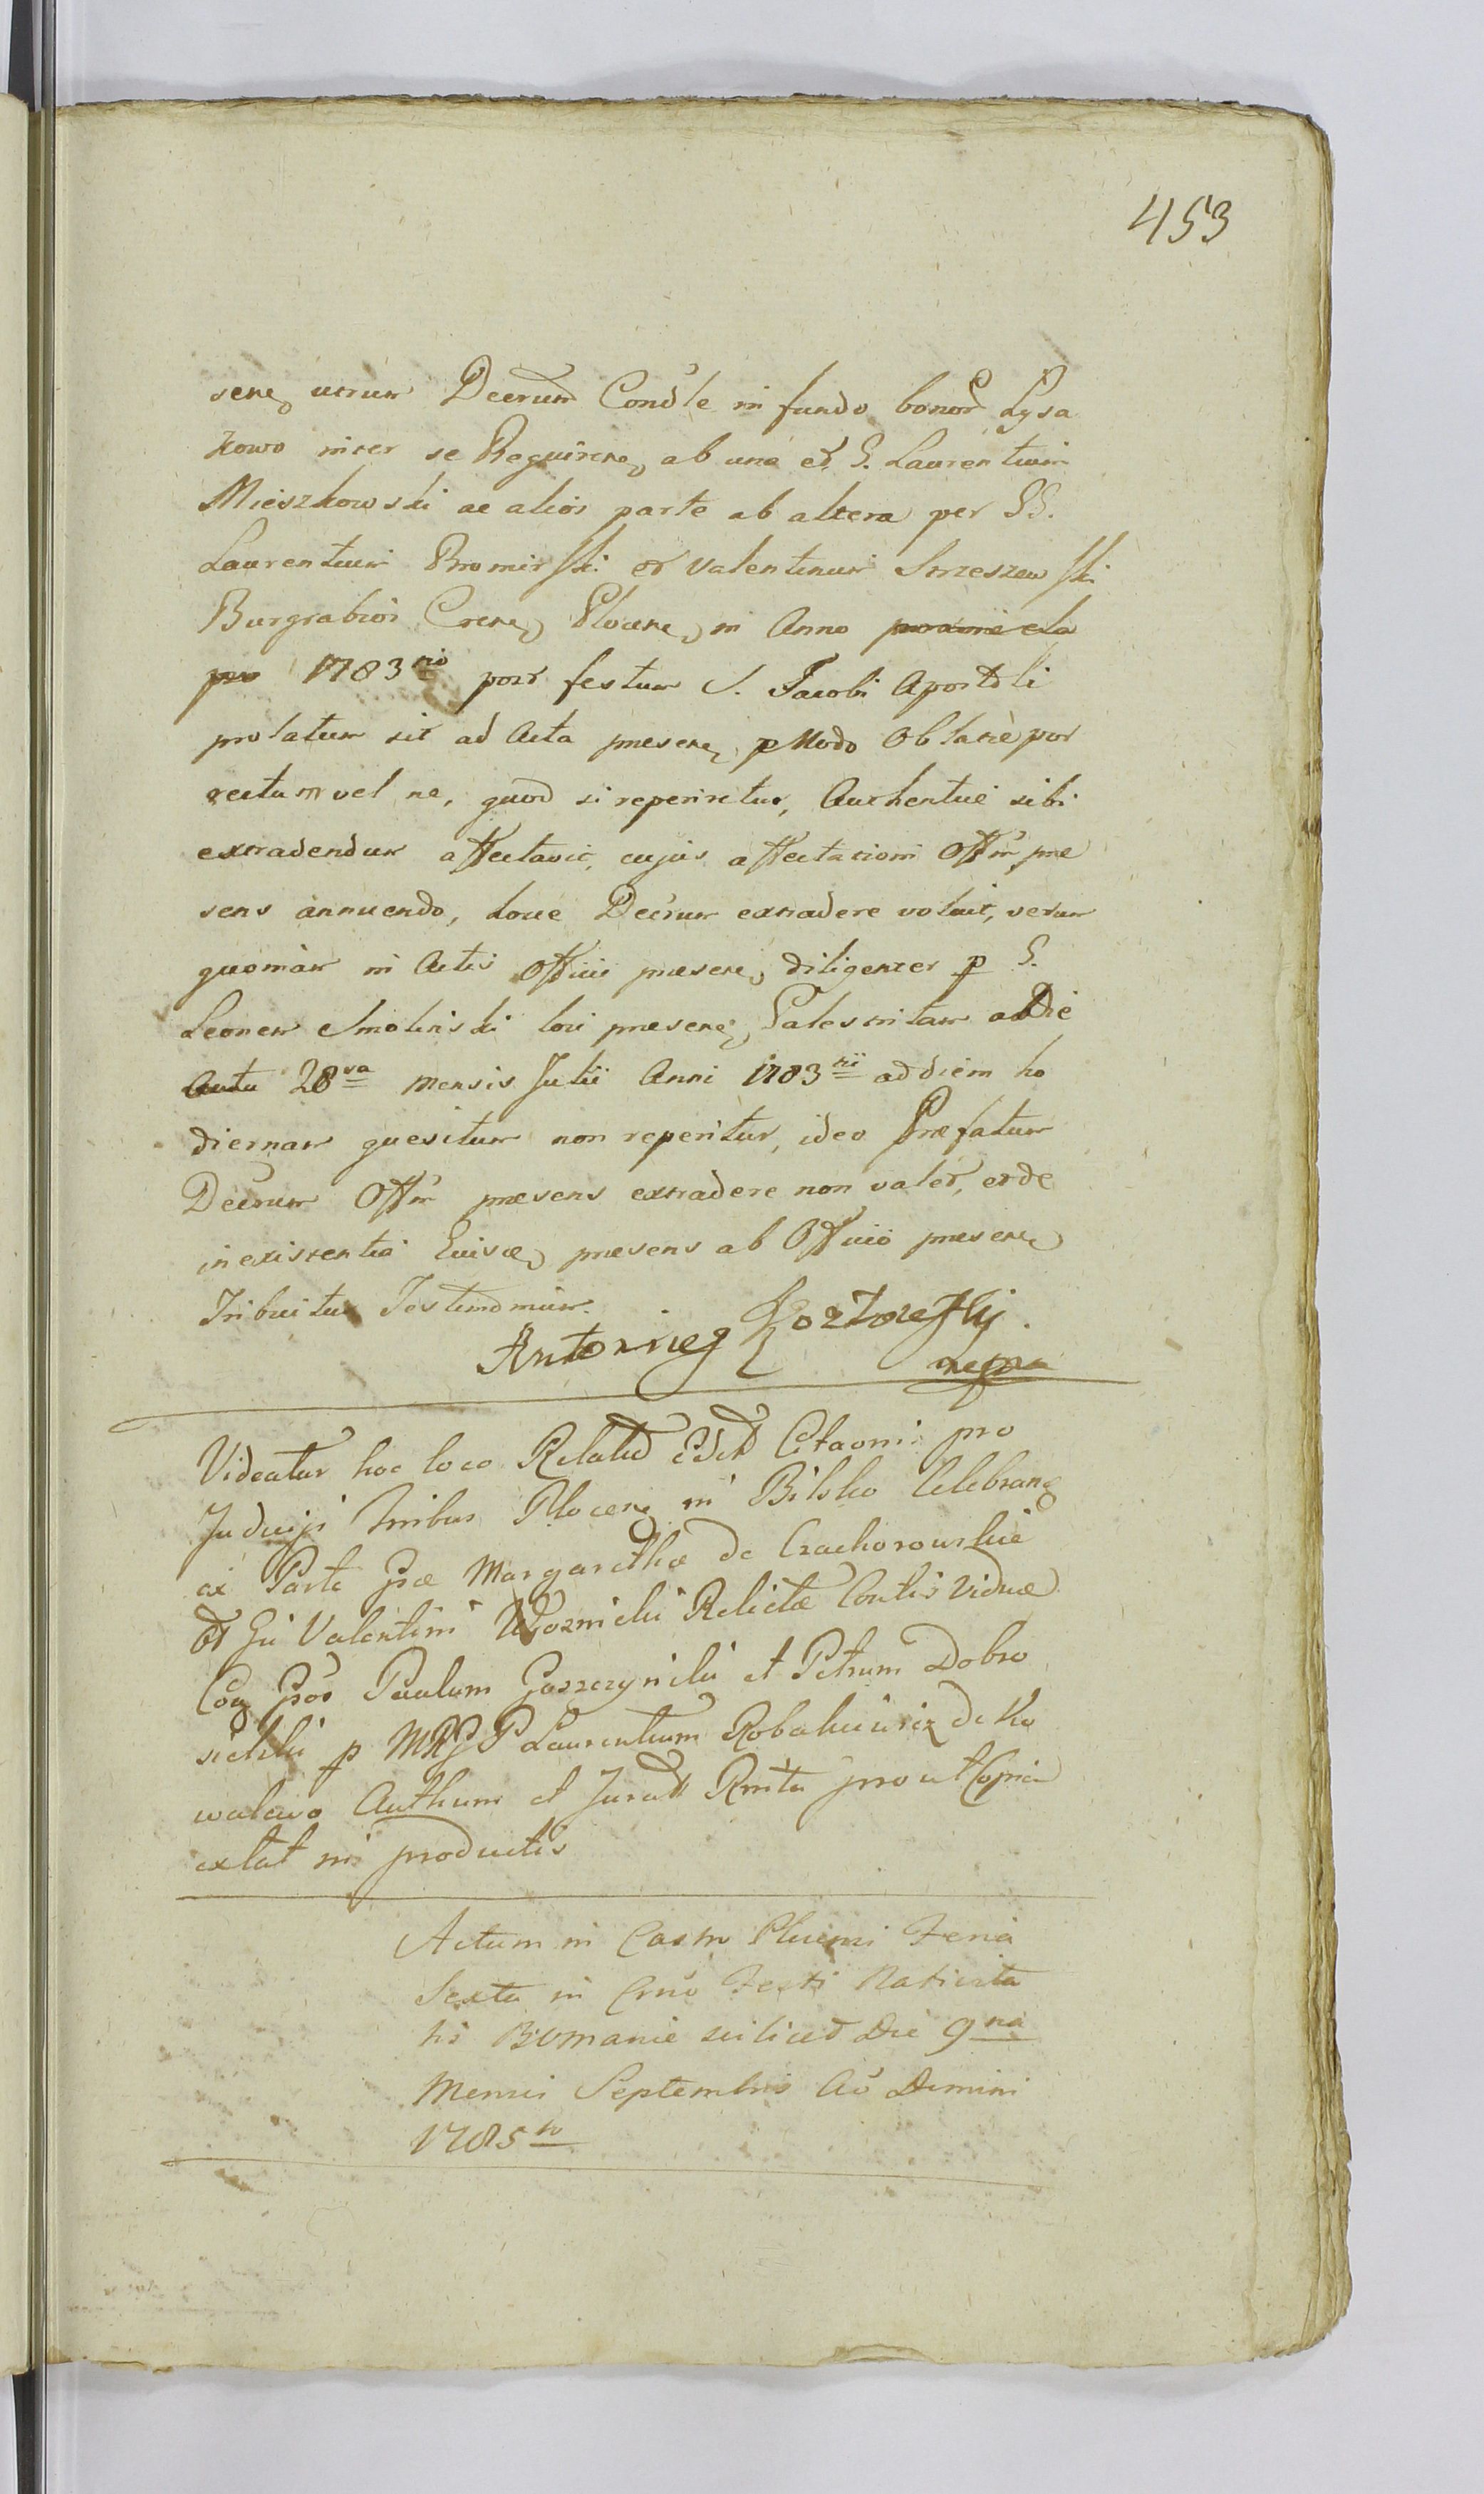 453
sen, utrum Decrum Condle in fundo bonor Lysa
kowo inter se Requiren, ab una et G. Laurentium
Mieszkowski ac alios parte ab altera per GG.
Laurentium Bromirski et Valentinum Strzeszewski
Burgrabios Cren, Plocen, in Anno proxime ela
pso 1783tio post festum S. Jacobi Apostoli
prolatum sit ad Acta presen, p Modo Oblatè por
rectum vel ne, quod si reperiretur, Authenticè sibi
extradendum affectavit, cujus affectationi Offm præ
sens annuendo, Decrum extradere voluit, verum
quoniam in Actis Officii præsen, diligenter p G.
Leonem Smolinski loci præsen, Palestritam a Die
28va mensis Julii Anni 1783tii ad diem ho
diernam quesitum non reperitur, ideo Præfatum
Decrum Offm præsens extradere non valet, et de
inexistentia præsens ab Officio præsen,
Tribuitur Testimonium.
Antonieg
mppa
Videatur hoc loco Relatio Citaoni pro
Judicijs Plocen in Bilsko Celebran
ex Parte Margarethæ de Czachorowskie
Gsi Valentini Woznicki Relictæ Contis Viduæ
Con Gsos Paulum Goszczynicki et Petrum Dobro
sielski p MRGP Laurentium Robakiewicz de Ko
walewo Authum et Jurat prout Copia
extat in productis
Actum in Castro Plucensi Feria
Sexta in Crno Festi Nativita
tis BVMariæ scilicet Die 9na
Mensis Septembris Ao Domini
1785to